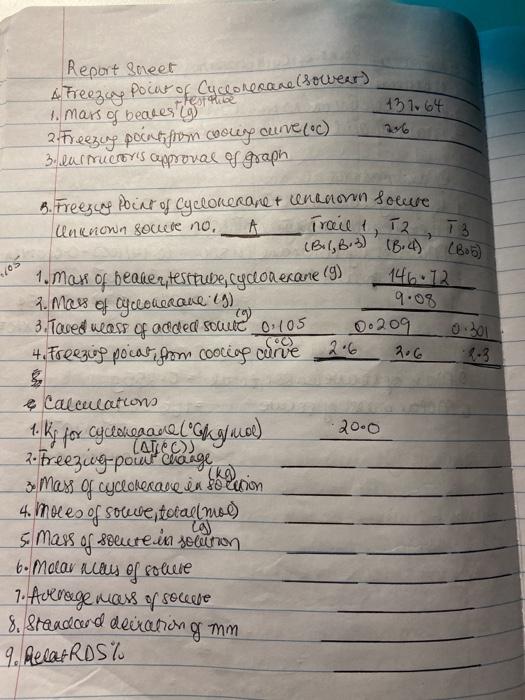 Report Sheet
A. Freezing Point of Cyclohexane (solvent)
1. Mass of beaker + test tube (g) 137.64
2. Freezing point, from cooling curve (°c) 2.6
3. Instructor's approval of graph
B. Freezing Point of cyclohexane + unknown Solute
Unknown solute no. A Trail 1, T2, T3
(B.1, B.3) (B.4) (B.5)
.105
1. Mass of beaker, test tube, cyclohexane (g) 146.72
2. Mass of cyclohexane (g) 9.08
3. Tared mass of added solute (g) 0.105 0.209 0.301
4. Freezing point, from cooling curve (°C) 2.6 2.6 2.3
Calculations
1. Kf for cyclohexane (°C kg/mol) 20.0
2. Freezing-point change (ΔTf (°C))
3. Mass of cyclohexane in solution (kg)
4. Moles of solute, total (mol)
5. Mass of solute in solution (g)
6. Molar mass of solute
7. Average mass of solute
8. Standard deviation of mm
9. RDS%